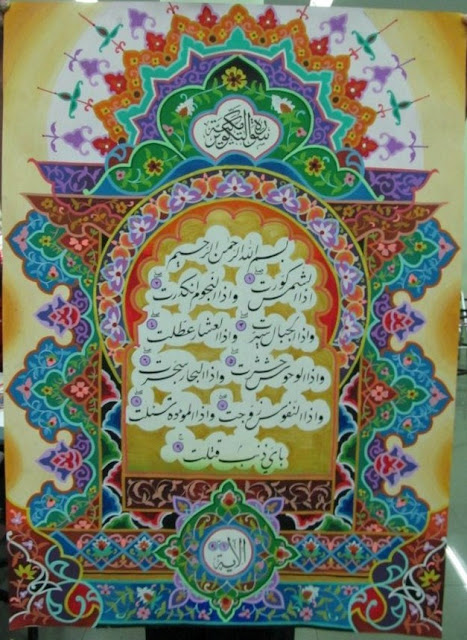 سورة التكوير
بسم الله الرحمن الرحيم
اذا الشمس كورت واذا النجوم انكدرت
واذا الجبال سيرت واذا العشار عطلت
واذا الوحوش حشرت واذا البحار سجرت
واذا النفوس زوجت واذا الموءدة سئلت
باي ذنب قتلت
الآية